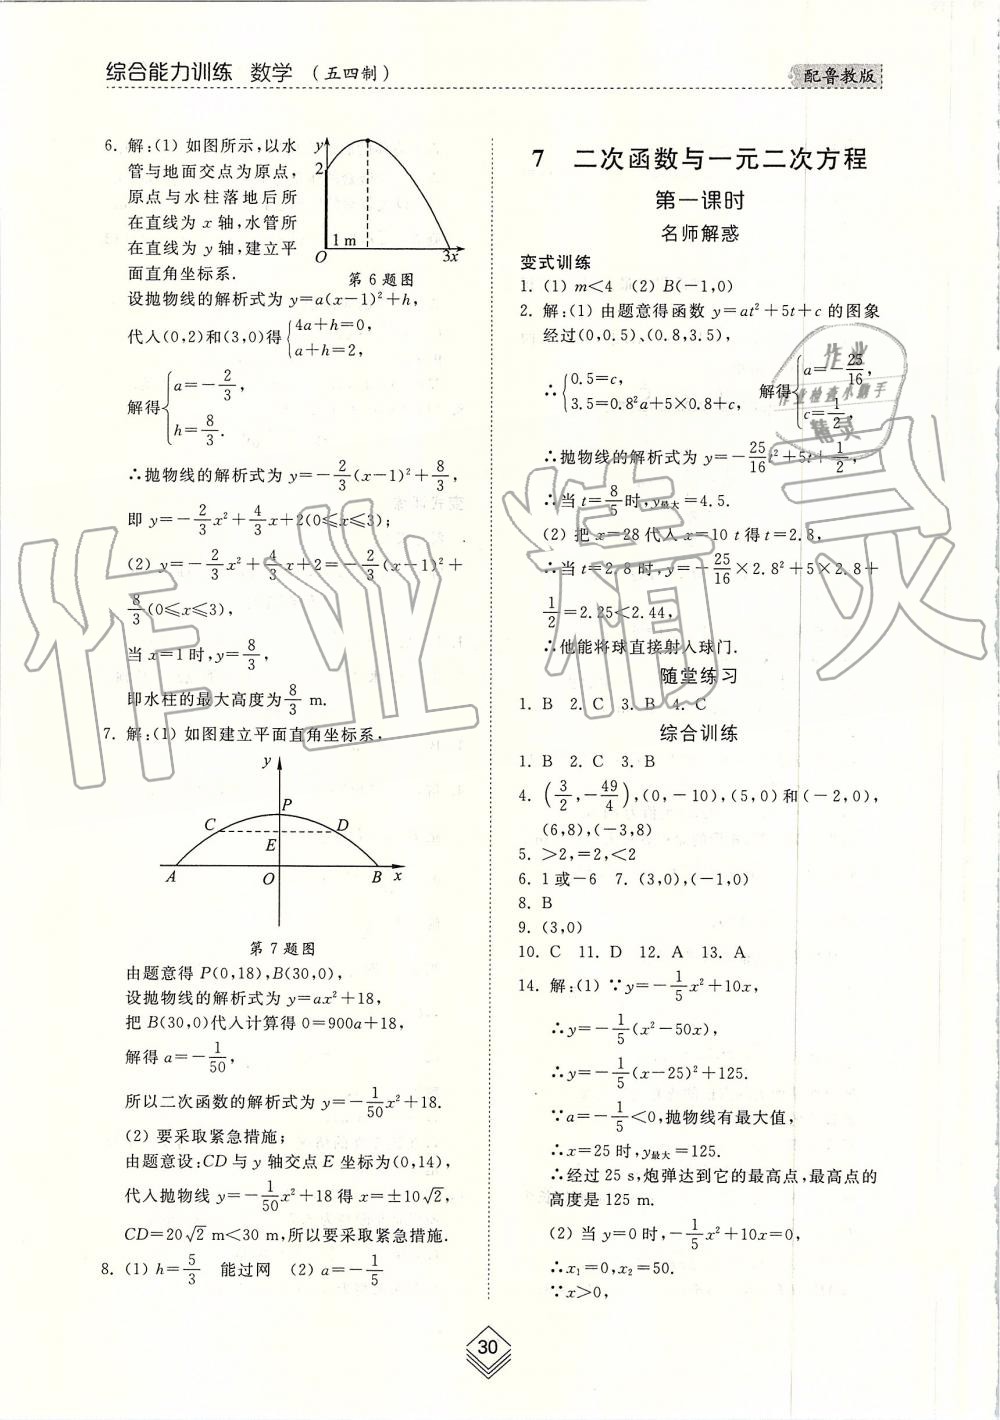 综合能力训练 数学 （五四制）
配鲁教版
6. 解:(1) 如图所示,以水
管与地面交点为原点,
原点与水柱落地后所
在直线为 x 轴,水管所
在直线为 y 轴,建立平
面直角坐标系.
y
2
1 m
O
3x
第 6 题图
设抛物线的解析式为 y=a(x-1)²+h,
代入(0,2)和(3,0)得{4a+h=0,
a+h=2,
解得{a=-2/3,
h=8/3.
∴抛物线的解析式为 y=-2/3(x-1)²+8/3,
即 y=-2/3x²+4/3x+2(0≤x≤3);
(2) y=-2/3x²+4/3x+2=-2/3(x-1)²+
8/3(0≤x≤3),
当 x=1 时,y=8/3,
即水柱的最大高度为8/3 m.
7. 解:(1) 如图建立平面直角坐标系,
y
P
C
D
E
A
O
B
x
第 7 题图
由题意得 P(0,18),B(30,0),
设抛物线的解析式为 y=ax²+18,
把 B(30,0)代入计算得 0=900a+18,
解得 a=-1/50,
所以二次函数的解析式为 y=-1/50x²+18.
(2) 要采取紧急措施;
由题意设:CD 与 y 轴交点 E 坐标为(0,14),
代入抛物线 y=-1/50x²+18 得 x=±10√2,
CD=20√2 m<30 m,所以要采取紧急措施.
8. (1) h=5/3 能过网 (2) a=-1/5
7 二次函数与一元二次方程
第一课时
名师解惑
变式训练
1. (1) m<4 (2) B(-1,0)
2. 解:(1) 由题意得函数 y=at²+5t+c 的图象
经过(0,0.5)、(0.8,3.5),
∴{0.5=c,
3.5=0.8²a+5×0.8+c, 解得{a=-25/16,
c=1/2,
∴抛物线的解析式为 y=-25/16t²+5t+1/2,
∴当 t=8/5时,y最大=4.5.
(2) 把 x=28 代入 x=10 t 得 t=2.8,
∴当 t=2.8 时,y=-25/16×2.8²+5×2.8+
1/2=2.25<2.44,
∴他能将球直接射入球门.
随堂练习
1. B 2. C 3. B 4. C
综合训练
1. B 2. C 3. B
4. (3/2,-49/4),(0,-10),(5,0)和(-2,0),
(6,8),(-3,8)
5. >2,=2,<2
6. 1 或-6 7. (3,0),(-1,0)
8. B
9. (3,0)
10. C 11. D 12. A 13. A
14. 解:(1) ∵y=-1/5x²+10x,
∴y=-1/5(x²-50x),
∴y=-1/5(x-25)²+125.
∵a=-1/5<0,抛物线有最大值,
∴x=25 时,y最大=125.
∴经过 25 s,炮弹达到它的最高点,最高点的
高度是 125 m.
(2) 当 y=0 时,-1/5x²+10x=0,
∴x₁=0,x₂=50.
∵x>0,
30
作业精灵
作业
作业检查小助手
精灵